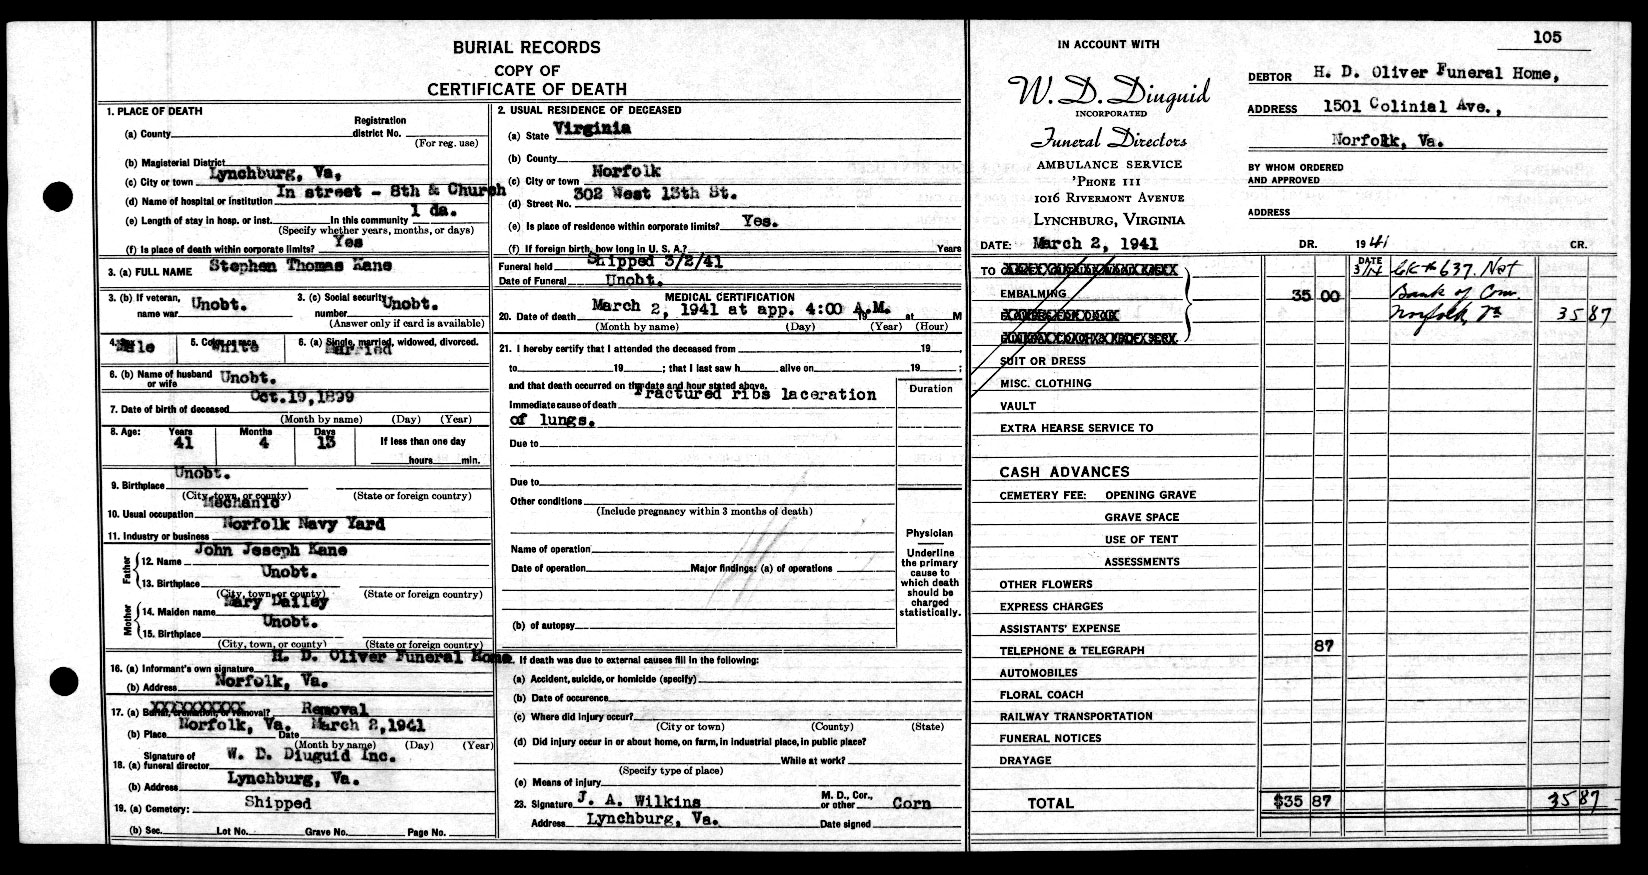 BURIAL RECORDS
COPY OF
CERTIFICATE OF DEATH
1. PLACE OF DEATH
(a) County
Registration district No.
(For reg. use)
(b) Magisterial District
(c) City or town Lynchburg, Va,
(d) Name of hospital or institution In street - 8th & Church
(e) Length of stay in hosp. or inst. In this community 1 da.
(Specify whether years, months, or days)
(f) Is place of death within corporate limits? Yes
3. (a) FULL NAME Stephen Thomas Kane
3. (b) If veteran, name war Unobt.
3. (c) Social security number Unobt.
(Answer only if card is available)
4. Male
5. Color or race White
6. (a) Single, married, widowed, divorced. Married
6. (b) Name of husband or wife Unobt.
7. Date of birth of deceased Oct.19,1899
(Month by name) (Day) (Year)
8. Age: Years 41 Months 4 Days 13 If less than one day
hours min.
9. Birthplace Unobt.
(City, town, or county) (State or foreign country)
10. Usual occupation Mechanic
11. Industry or business Norfolk Navy Yard
Father
12. Name John Joseph Kane
13. Birthplace Unobt.
(City, town, or county) (State or foreign country)
Mother
14. Maiden name Mary Dailey
15. Birthplace Unobt.
(City, town, or county) (State or foreign country)
16. (a) Informant's own signature H. D. Oliver Funeral Home
(b) Address Norfolk, Va.
17. (a) Burial, cremation, or removal? XXXXXXXXX Removal
(b) Place Norfolk, Va. Date March 2,1941
(Month by name) (Day) (Year)
18. (a) Signature of funeral director W. D. Diuguid Inc.
(b) Address Lynchburg, Va.
19. (a) Cemetery: Shipped
(b) Sec. Lot No. Grave No. Page No.
2. USUAL RESIDENCE OF DECEASED
(a) State Virginia
(b) County
(c) City or town Norfolk
(d) Street No. 302 West 13th St.
(e) Is place of residence within corporate limits? Yes.
(f) If foreign birth, how long in U. S. A.? Years
Funeral held Shipped 3/2/41
Date of Funeral Unobt.
MEDICAL CERTIFICATION
20. Date of death March 2, 1941 at app. 4:00 A.M. 19 at M
(Month by name) (Day) (Year) (Hour)
21. I hereby certify that I attended the deceased from 19 ,
to 19 ; that I last saw h alive on 19 ;
and that death occurred on the date and hour stated above.
Immediate cause of death Fractured ribs laceration
of lungs.
Duration
Due to
Due to
Other conditions
(Include pregnancy within 3 months of death)
Name of operation
Date of operation Major findings: (a) of operations
(b) of autopsy
Physician
Underline the primary cause to which death should be charged statistically.
22. If death was due to external causes fill in the following:
(a) Accident, suicide, or homicide (specify)
(b) Date of occurence
(c) Where did injury occur?
(City or town) (County) (State)
(d) Did injury occur in or about home, on farm, in industrial place, in public place?
While at work?
(Specify type of place)
(e) Means of injury
23. Signature J. A. Wilkins M. D., Cor., or other Corn
Address Lynchburg, Va. Date signed
105
IN ACCOUNT WITH
W. D. Diuguid
INCORPORATED
Funeral Directors
AMBULANCE SERVICE
'PHONE 111
1016 RIVERMONT AVENUE
LYNCHBURG, VIRGINIA
DEBTOR H. D. Oliver Funeral Home,
ADDRESS 1501 Colinial Ave.,
Norfolk, Va.
BY WHOM ORDERED AND APPROVED
ADDRESS
DATE: March 2, 1941 DR. 1941 CR.
TO DATE 3/14 Ck # 637. Nat
EMBALMING 35 00 Bank of Com.
Norfolk, Va 35 87
SUIT OR DRESS
MISC. CLOTHING
VAULT
EXTRA HEARSE SERVICE TO
CASH ADVANCES
CEMETERY FEE: OPENING GRAVE
GRAVE SPACE
USE OF TENT
ASSESSMENTS
OTHER FLOWERS
EXPRESS CHARGES
ASSISTANTS' EXPENSE
TELEPHONE & TELEGRAPH 87
AUTOMOBILES
FLORAL COACH
RAILWAY TRANSPORTATION
FUNERAL NOTICES
DRAYAGE
TOTAL $35 87 35 87